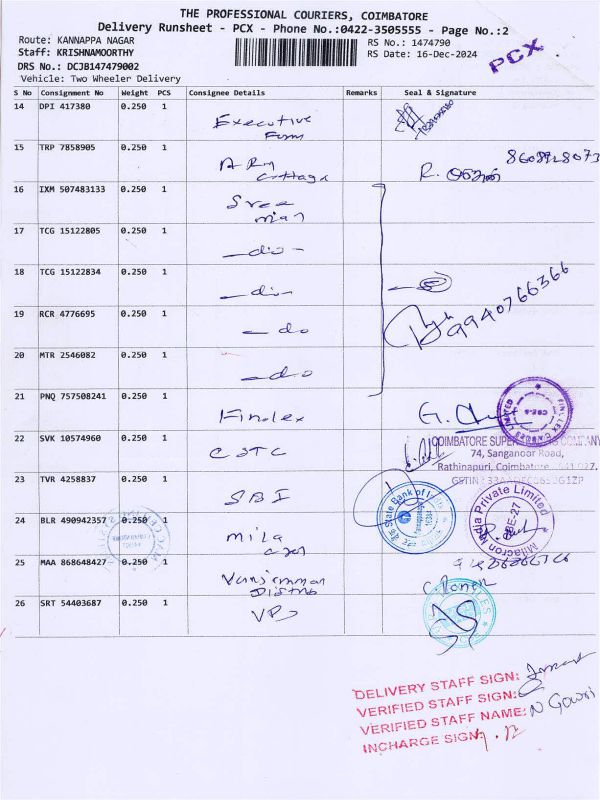 THE PROFESSIONAL COURIERS, COIMBATORE
Delivery Runsheet - PCX - Phone No.:0422-3505555 - Page No.:2
Route: KANNAPPA NAGAR
Staff: KRISHNAMOORTHY
DRS No.: DCJB147479002
Vehicle: Two Wheeler Delivery
RS No.: 1474790
RS Date: 16-Dec-2024
PCX
S No Consignment No Weight PCS Consignee Details Remarks Seal & Signature
14 DPI 417380 0.250 1 Executive Form
15 TRP 7858905 0.250 1 ARM cottage R. 8608928073
16 IXM 507483133 0.250 1 Sree
17 TCG 15122805 0.250 1 -do-
18 TCG 15122834 0.250 1 -do-
19 RCR 4776695 0.250 1 -do 9940766366
20 MTR 2546082 0.250 1 -do
21 PNQ 757508241 0.250 1 Finolex G.
FINOLEX CABLES LIMITED
22 SVK 10574960 0.250 1 CSTC
COIMBATORE SUPER COMPANY
74, Sanganoor Road,
Rathinapuri, Coimbatore 641 027.
23 TVR 4258837 0.250 1 SBI
State Bank of India
24 BLR 490942357 0.250 1 mila
Milacron India Private Limited
25 MAA 868648427 0.250 1 Distrib
26 SRT 54403687 0.250 1 VPS
DELIVERY STAFF SIGN:
VERIFIED STAFF SIGN:
VERIFIED STAFF NAME: N Gowri
INCHARGE SIGN: